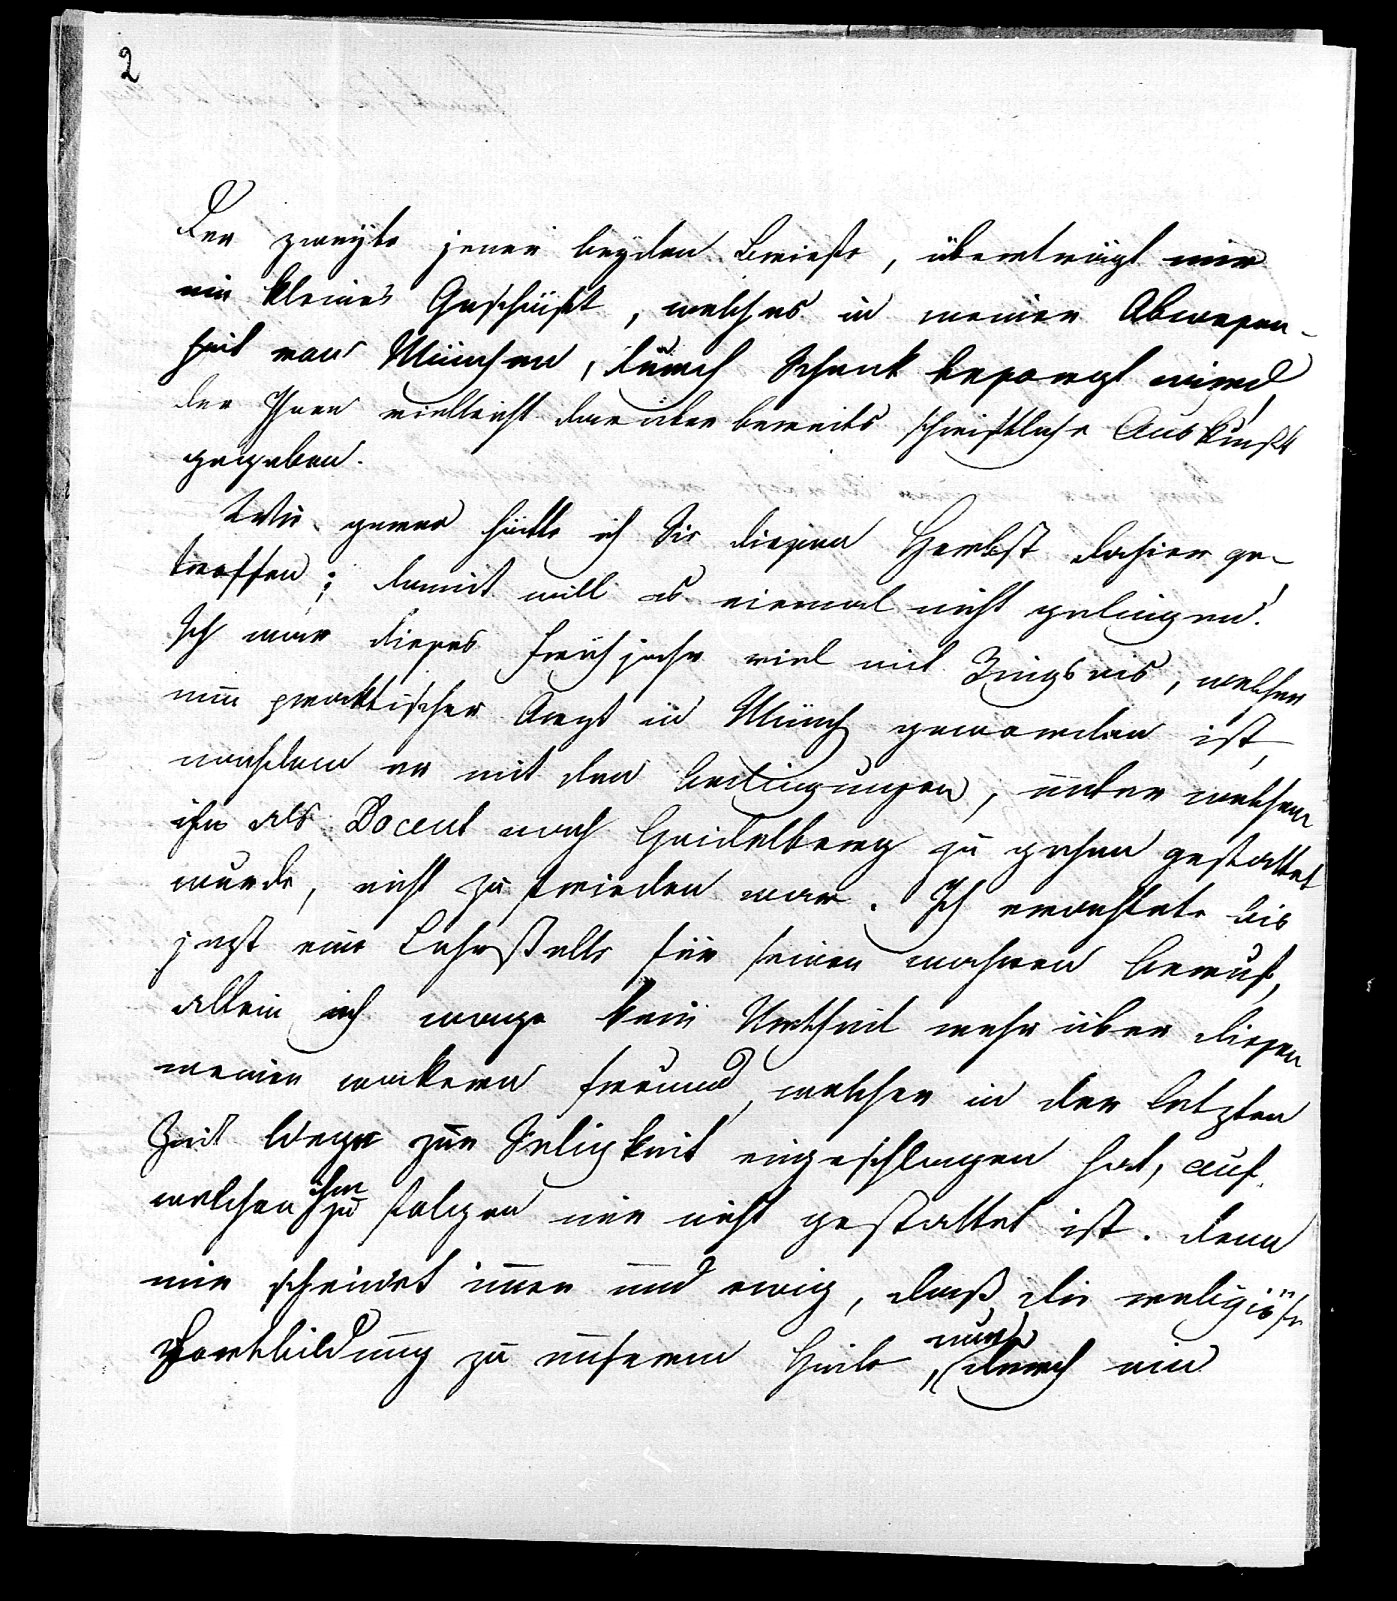 2
Der zweyte jener beyden Briefe, überträgt mir
ein kleines Geschäft, welches in meiner Abwesen-
heit von München, durch Schenk besorgt wird,
der Ihnen vielleicht darüber bereits schriftliche Auskunft
gegeben.
Wie gerne hätte ich Sie diesen Herbst dahier ge-
troffen; damit will es einmal nicht gelingen!
Ich war dieses Frühjahr viel mit Ringseis, welcher
nun praktischer Arzt in Münch geworden ist,
nachdem er mit den Bedingungen, unter welchen
ihn als Docent nach Heidelberg zu gehen gestattet
wurde, nicht zufrieden war. Ich erachtete bis
jezt eine Lehrstelle für seinen wahren Beruf,
allein ich wage kein Urtheil mehr über diesen
meinen wackern Freund, welcher in der letzten
Zeit Wege zur Seligkeit eingeschlagen hat, auf
welchen ihm zu folgen mir nicht gestattet ist. Denn
mir scheinet immer und ewig, daß die religiöse
Fortbildung zu unserem Heile, nur durch ein